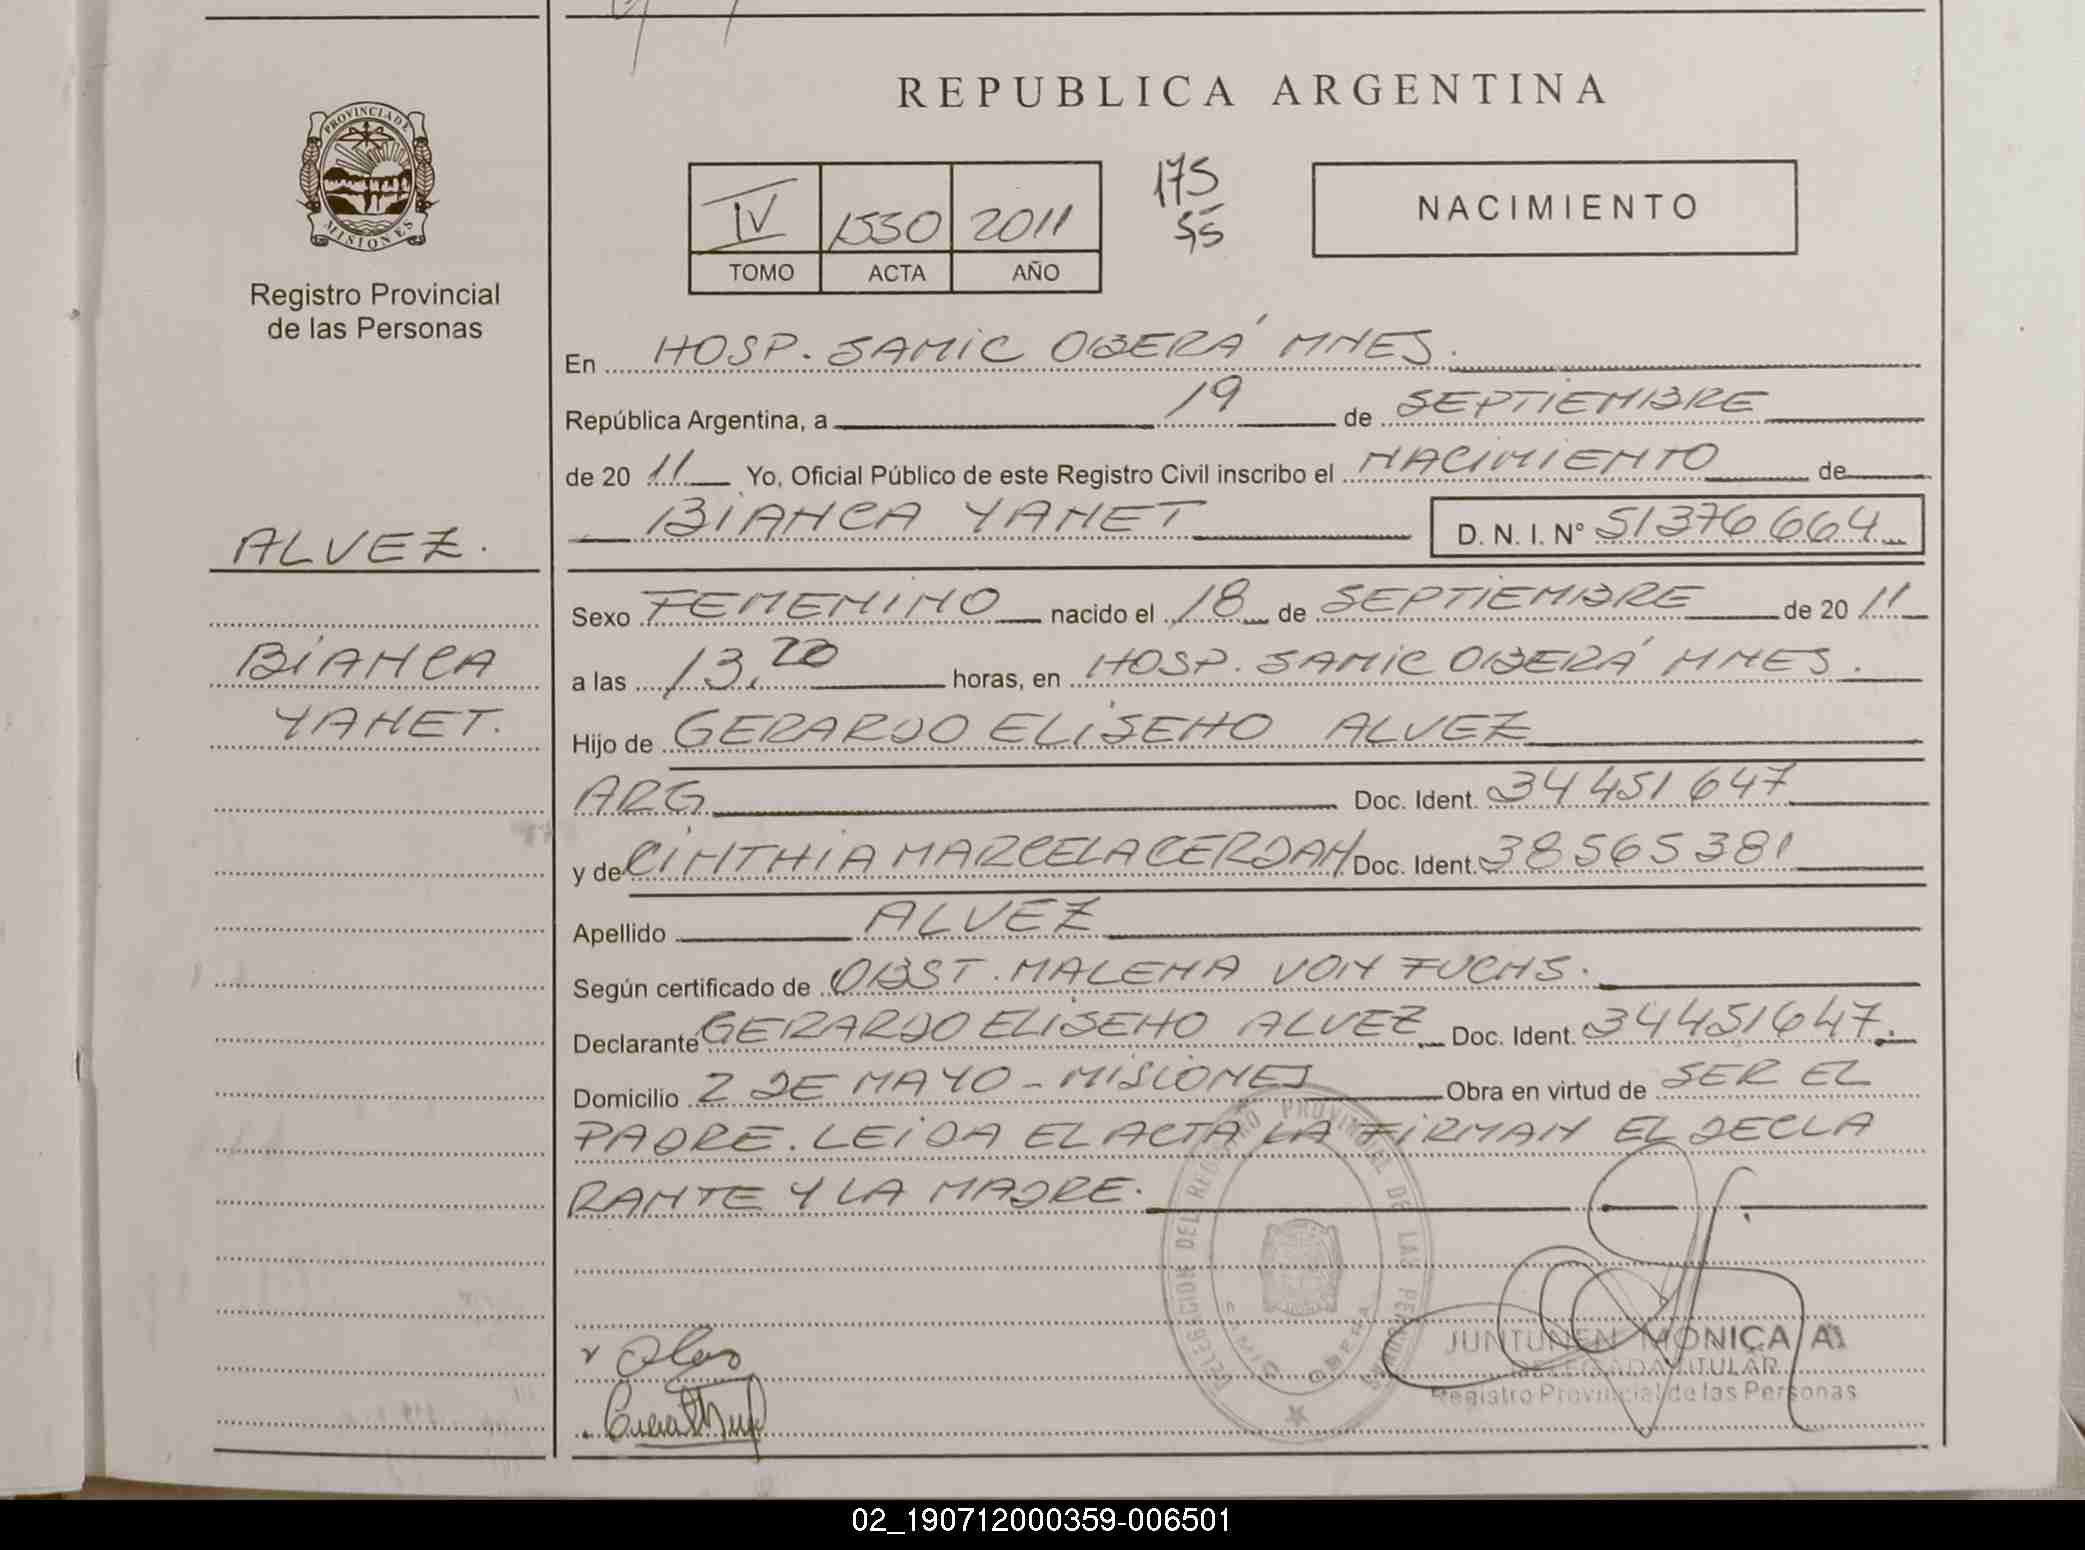 REPUBLICA ARGENTINA
PROVINCIA DE
MISIONES
Registro Provincial
de las Personas
IV 1550 2011
TOMO ACTA AÑO
175
55
NACIMIENTO
En HOSP. SAMIC OBERÁ MNES.
República Argentina, a 19 de SEPTIEMBRE
de 20 11 Yo, Oficial Público de este Registro Civil inscribo el NACIMIENTO de
BIANCA YANET D. N. I. Nº 51376664
ALVEZ.
BIANCA
YANET.
Sexo FEMENINO nacido el 18 de SEPTIEMBRE de 20 11
a las 13,20 horas, en HOSP. SAMIC OBERÁ MNES.
Hijo de GERARDO ELISEHO ALVEZ
ARG Doc. Ident. 34451647
y de CINTHIA MARCELA CERDAN Doc. Ident. 38565381
Apellido ALVEZ
Según certificado de OBST. MALENA VON FUCHS.
Declarante GERARDO ELISEHO ALVEZ Doc. Ident. 34451647.
Domicilio 2 DE MAYO - MISIONES Obra en virtud de SER EL
PADRE. LEIDA EL ACTA LA FIRMAN EL DECLA
RANTE Y LA MADRE.
DELEGACION DEL REGISTRO PROVINCIAL DE LAS PERSONAS
OBERA
JUNTUNEN MONICA A.
DELEGADA TITULAR
Registro Provincial de las Personas
02_190712000359-006501